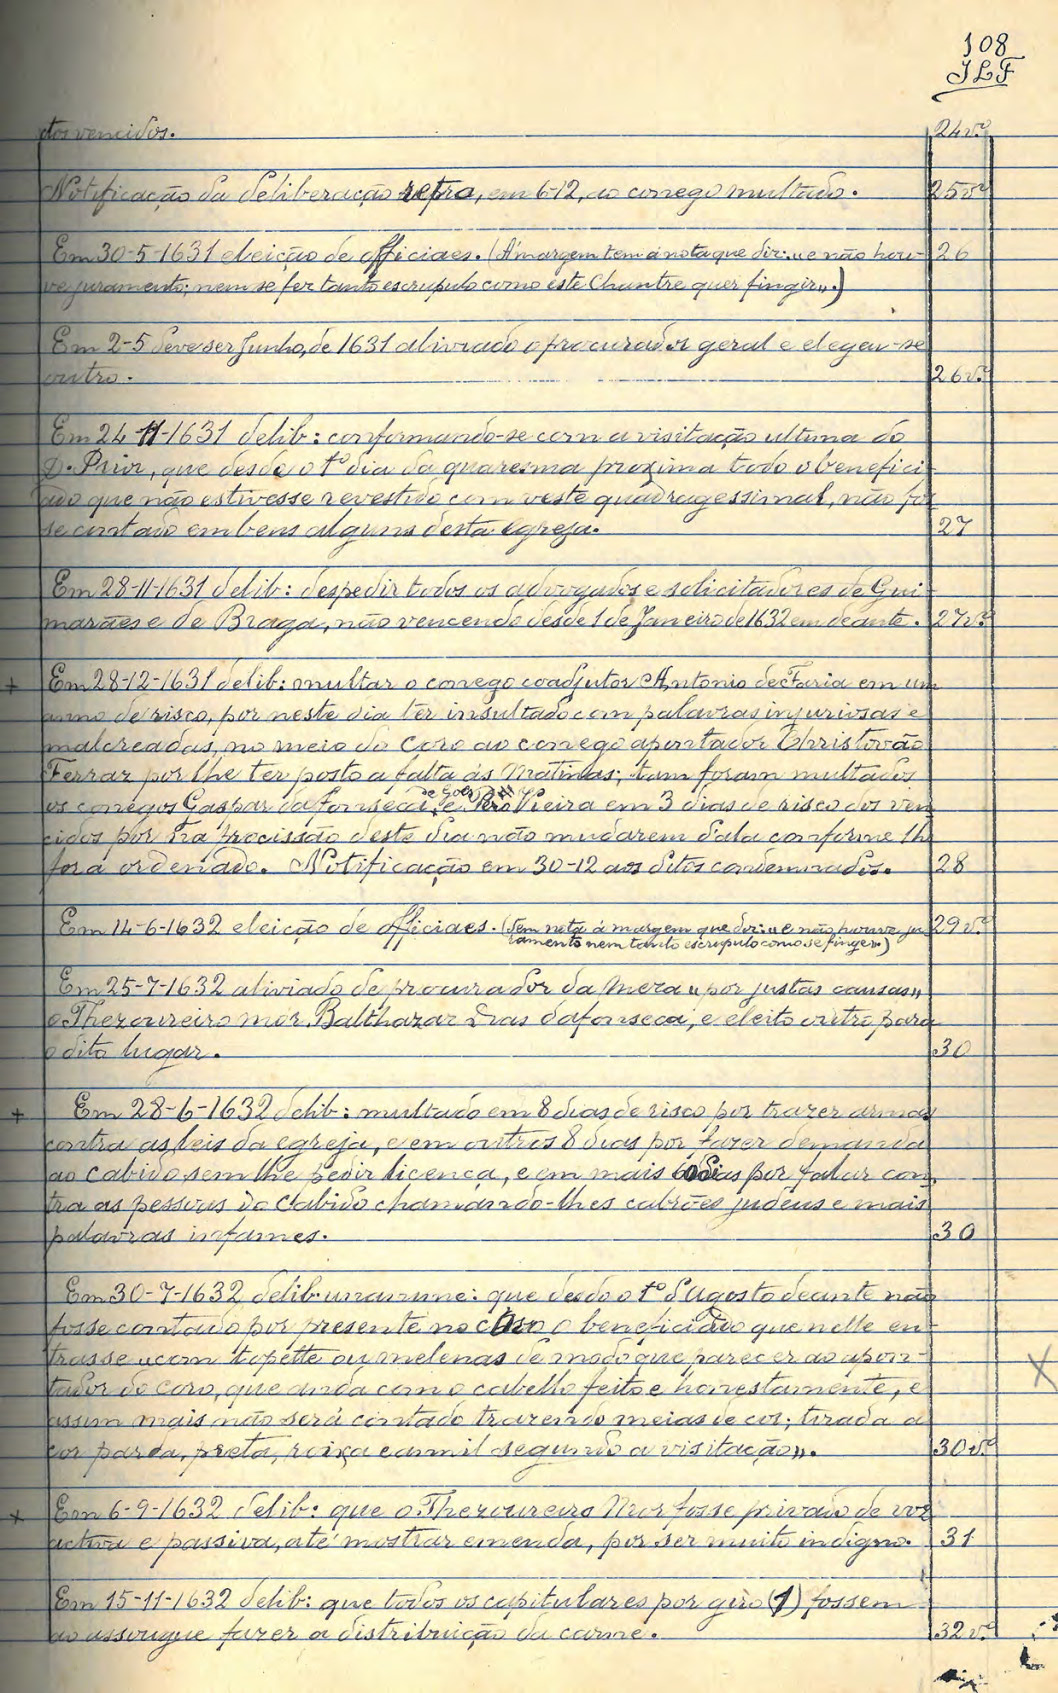 108
JLF
dos vencidos. 24vº
Notificação da deliberação retro, em 6-12, ao conego multado. 25vº
Em 30-5-1631 eleição de officiaes. (Á margem tem a nota que diz: «e não hou- 26
ve juramento; nem se fez tanto escrupulo como este Chantre quer fingir».)
Em 2-5 deve ser Junho, de 1631 aliviado o procurador geral e elegeu-se
outro. 26vº
Em 24-11-1631 delib: conformando-se com a visitação ultima do
D. Prior, que desde o 1º dia da quaresma proxima todo o benefici-
ado que não estivesse revestido com veste quadragessimal, não fos-
se contado em bens alguns desta egreja. 27
Em 28-11-1631 delib: despedir todos os advogados e solicitadores de Gui-
marães e de Braga, não vencendo desde 1 de Janeiro de 1632 em deante. 27vº
+ Em 28-12-1631 delib: multar o conego coadjutor Antonio de Faria em um
anno de risco, por neste dia ter insultado com palavras injuriosas e
malcreadas, no meio do coro ao conego apontador Christovão
Ferraz por lhe ter posto a falta ás Matinas; tam foram multados
os conegos Gaspar da Fonseca de Goes e Pero Vieira em 3 dias de risco dos ven-
cidos por na procissão deste dia não mudarem d'ala conforme lhe
fora ordenado. Notificação em 30-12 aos ditos condemnados. 28
Em 14-6-1632 eleição de officiaes. (Tem nota á margem que diz: «e não houve ju- 29vº
ramento nem tanto escrupulo como se finge».)
Em 25-7-1632 aliviado de procurador da Meza «por justas causas»
o Thezoureiro mór Balthazar Dias dafonseca, e eleito outro para
o dito lugar. 30
+ Em 28-6-1632 delib: multado em 8 dias de risco por trazer armas
contra as leis da egreja, e em outros 8 dias por fazer demanda
ao Cabido sem lhe pedir licença, e em mais dias por falar con-
tra as pessoas do Cabido chamando-lhes cabrões judeus e mais
palavras infames. 30
Em 30-7-1632 delib. unanime: que desde o 1º d'Agosto deante não
fosse contado por presente no coro o beneficiado que nelle en-
trasse «com topette ou melenas de modo que parecer ao apon-
tador do coro, que anda com o cabello feito e honestamente, e
assim mais não será contado trazendo meias de cor; tirada a
cor parda, preta, roixa e anil segundo a visitação». 30vº
+ Em 6-9-1632 delib: que o Thezoureiro Mor fosse privado de voz
activa e passiva, até mostrar emenda, por ser muito indigno. 31
Em 15-11-1632 delib: que todos os capitulares por giro (1) fossem
ao assougue fazer a distribuição da carne. 32vº